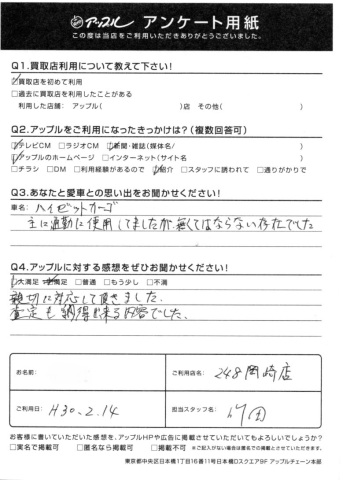 アップル アンケート用紙
この度は当店をご利用いただきありがとうございました。
Q1.買取店利用について教えて下さい!
買取店を初めて利用
□過去に買取店を利用したことがある
利用した店舗: アップル( )店 その他( )
Q2.アップルをご利用になったきっかけは?(複数回答可)
テレビCM □ラジオCM 新聞・雑誌(媒体名/ )
アップルのホームページ □インターネット(サイト名 )
□チラシ □DM □利用経験があるので 紹介 □スタッフに誘われて □通りがかりで
Q3.あなたと愛車との思い出をお聞かせください!
車名: ハイゼットカーゴ
主に通勤に使用してましたが、無くてはならない存在でした
Q4.アップルに対する感想をぜひお聞かせください!
大満足 満足 □普通 □もう少し □不満
親切に対応して頂きました。
査定も納得出来る内容でした。
お名前:
ご利用店名: 248岡崎店
ご利用日: H30.2.14
担当スタッフ名:
お客様に書いていただいた感想を、アップルHPや広告に掲載させていただいてもよろしいでしょうか?
□実名で掲載可 □匿名なら掲載可 □掲載不可 ※ご記入がない場合は匿名での掲載とさせていただきます。
東京都中央区日本橋1丁目16番11号日本橋Dスクエア9F アップルチェーン本部